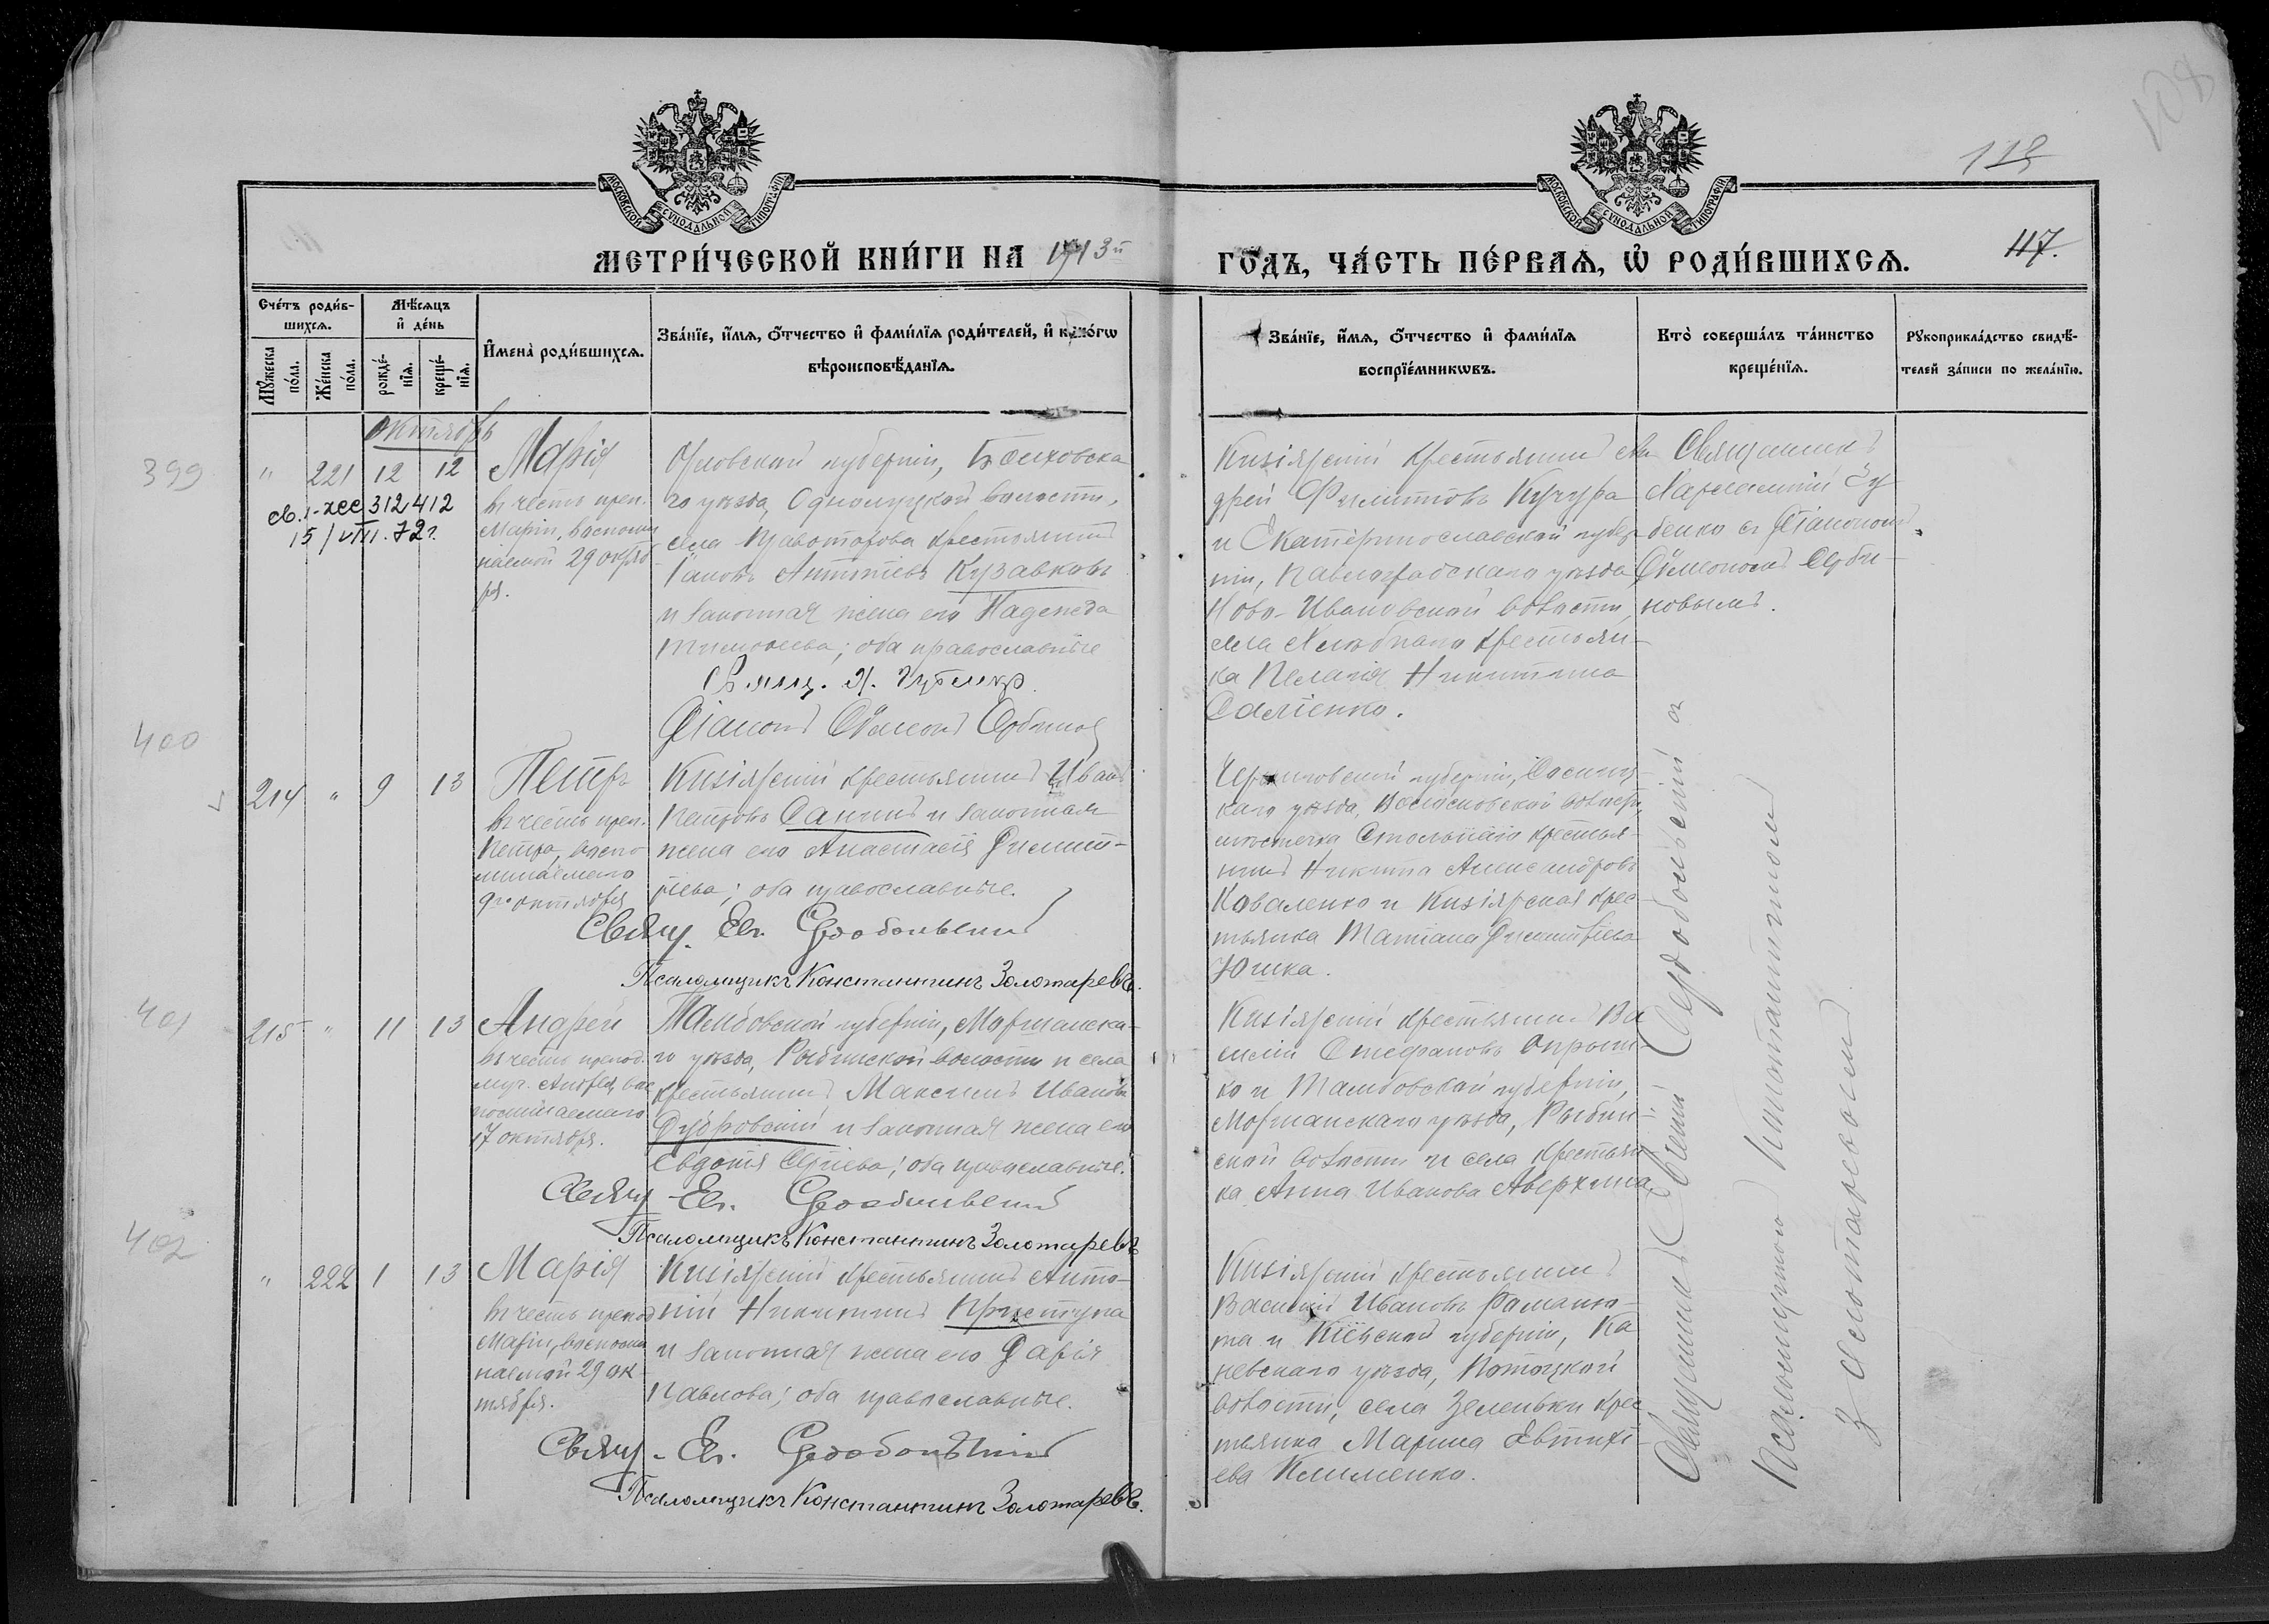 108
118
117.
МОСКОВСКОЙ СѴНОДАЛЬНОЙ ТИПОГРАФІИ
МОСКОВСКОЙ СѴНОДАЛЬНОЙ ТИПОГРАФІИ
МЕТРИ́ЧЕСКОЙ КНИ́ГИ НА 1913й
ГО́ДЪ, ЧА́СТЬ ПЕ́РВАѦ, Ѡ҆ РОДИ́ВШИХСѦ.
Сче́тъ роди́в-
шихсѧ.
Мꙋ́жеска по́ла.
Же́нска по́ла.
Мѣ́сѧцъ
и҆ де́нь
рожде́-
нїѧ.
креще́-
нїѧ.
И҆мена̀ роди́вшихсѧ.
Зва́нїе, и҆́мѧ, ѻ҆́тчество и҆ фами́лїѧ роди́телей, и҆ како́гѡ
вѣроисповѣ́данїѧ.
Зва́нїе, и҆́мѧ, ѻ҆́тчество и҆ фами́лїѧ
воспрїе́мникѡвъ.
Кто̀ соверша́лъ та́инство
креще́нїѧ.
Рꙋкоприкла́дство свидѣ́-
телей за́писи по жела́нїю.
октябрь
399
" 221 12 12
св. I-хес 312412
15/VIII.72г.
Марія
въ честь преп.
Маріи, воспоми
наемой 29 октяб
ря.
Орловской губерніи, Болховска
го уѣзда, Однолуцкой волости,
села Кривоторова крестьянинъ
Іаковъ Антиповъ Кузавковъ
и законная жена его Надежда
Тимофеева; оба православные
Свящ. Х. Чубенко
Діаконъ Сѵмеонъ Сербиновъ
Кизіярскій крестьянинъ Ан
дрей Филипповъ Кучура
и Екатеринославской губер
ніи, Павлоградскаго уѣзда,
Ново-Ивановской волости,
села крестьян-
ка Пелагія Никитина
Саліенко.
Священникъ
Харлампій Чу
бенко съ Діакономъ
Сѵмеономъ Серби-
новымъ.
400
214 " 9 13
Петръ
въ честь преп.
Петра, воспо
минаемаго
9го октября
Кизіярскій крестьянинъ Иванъ
Петровъ Санинъ и законная
жена его Анастасія Димит-
ріева; оба православные.
Свящ. Ев. Сердобольскій
Псаломщикъ Константинъ Золотаревъ.
Черниговской губерніи, Сосниц-
каго уѣзда, волости,
мѣстечка Стольнаго крестья-
нинъ Никита Александровъ
Коваленко и Кизіярская крес-
тьянка Татіана Димитріева
Юшка.
401
215 " 11 13
Андрей
въ честь препод.
муч. Андрея, вос
поминаемаго
17 октября.
Тамбовской губерніи, Моршанска-
го уѣзда, Рыбинской волости и села
крестьянинъ Максимъ Ивановъ
Дубровскій и законная жена его
Евдокія Сергіева; оба православные.
Свящ. Ев. Сердобольскій
Псаломщикъ Константинъ Золотаревъ
Кизіярскій крестьянинъ Ва
силій Стефановъ Опрыш-
ко и Тамбовской губерніи,
Моршанскаго уѣзда, Рыбин-
ской волости и села крестьян
ка Анна Иванова Аверкина.
402
" 222 1 13
Марія
въ честь препод
Маріи, воспоми
наемой 29 ок
тября.
Кизіярскій крестьянинъ Анто-
ній Никитинъ Приступа
и законная жена его Дарія
Павлова; оба православные.
Свящ. Ев. Сердобольскій
Псаломщикъ Константинъ Золотаревъ.
Кизіярскій крестьянинъ
Василій Ивановъ Фаманю-
та и Кіевской губерніи, Ка
невскаго уѣзда, Потоцкой
волости, села Зеленьки крес
тьянка Марина Евтихі-
ева Клименко.
Священникъ Евгеній Сердобольскій съ
Псаломщикомъ Константиномъ
Золотаревымъ